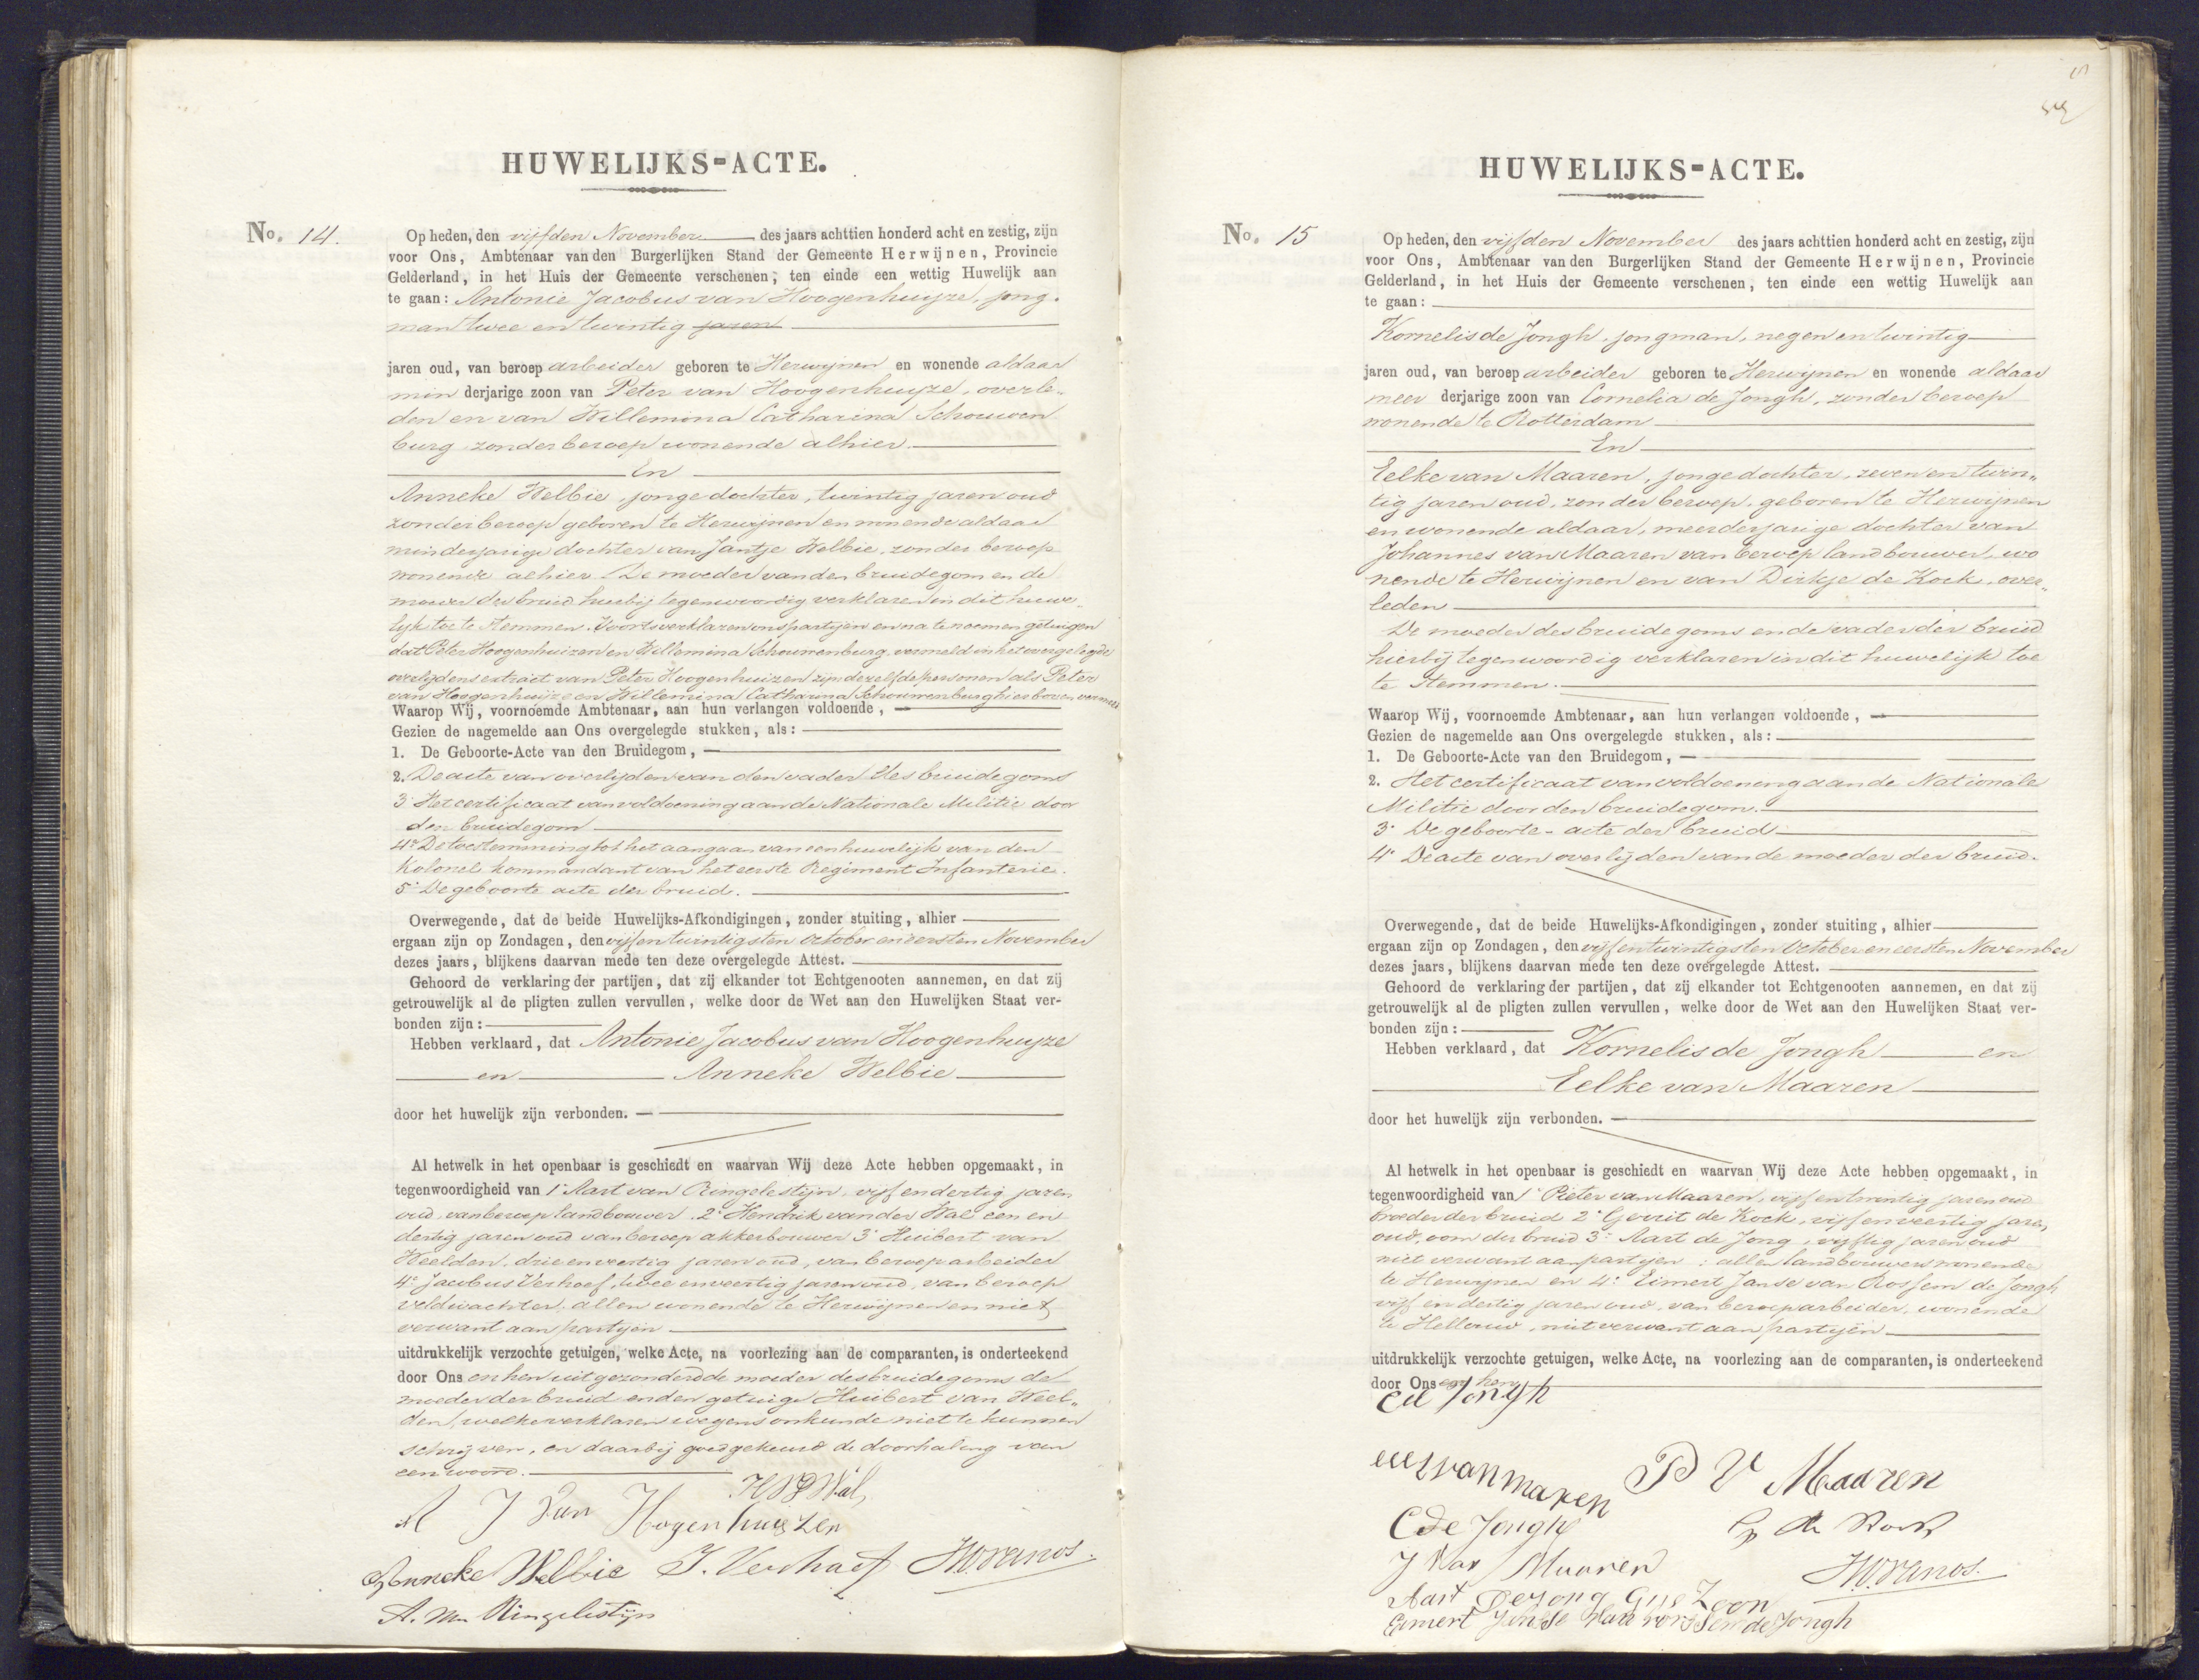 HUWELIJKS-ACTE.
No. 14.
Op heden, den vijfden November des jaars achttien honderd acht en zestig, zijn
voor Ons, Ambtenaar van den Burgerlijken Stand der Gemeente Herwijnen, Provincie
Gelderland, in het Huis der Gemeente verschenen, ten einde een wettig Huwelijk aan
te gaan: Antonie Jacobus van Hoogenhuijze, jong-
man twee en twintig jaren
jaren oud, van beroep arbeider geboren te Herwijnen en wonende aldaar
min derjarige zoon van Peter van Hoogenhuijze, overle-
den en van Willemina Catharina Schouwen
burg zonder beroep wonende alhier.
En
Anneke Welbie, jonge dochter, twintig jaren oud
zonder beroep geboren te Herwijnen en wonende aldaar
minderjarige dochter van Jantje Welbie, zonder beroep
wonende alhier. De moeder van den bruidegom en de
moeder der bruid hierbij tegenwoordig verklaren in dit huwe-
lijk toe te stemmen. Voorts verklaren ons partijen en na te noemen getuigen
dat Peter Hoogenhuizen en Willemina Schouwenburg, vermeld in het overgelegde
overlijdens extract van Peter Hoogenhuizen zijn dezelfde personen als Peter
van Hoogenhuijze en Willemina Catharina Schouwenburg hierboven vermeld
Waarop Wij, voornoemde Ambtenaar, aan hun verlangen voldoende,
Gezien de nagemelde aan Ons overgelegde stukken, als:
1. De Geboorte-Acte van den Bruidegom,
2. De acte van overlijden van den vader des bruidegoms
3° Het certificaat van voldoening aan de Nationale Militie door
den bruidegom
4° De toestemming tot het aangaan van een huwelijk van den
Kolonel kommandant van het eerste Regiment Infanterie.
5° De geboorte acte der bruid.
Overwegende, dat de beide Huwelijks-Afkondigingen, zonder stuiting, alhier
ergaan zijn op Zondagen, den vijf en twintigsten October en eersten November
dezes jaars, blijkens daarvan mede ten deze overgelegde Attest.
Gehoord de verklaring der partijen, dat zij elkander tot Echtgenooten aannemen, en dat zij
getrouwelijk al de pligten zullen vervullen, welke door de Wet aan den Huwelijken Staat ver-
bonden zijn:
Hebben verklaard, dat Antonie Jacobus van Hoogenhuijze
en Anneke Welbie
door het huwelijk zijn verbonden.
Al hetwelk in het openbaar is geschiedt en waarvan Wij deze Acte hebben opgemaakt, in
tegenwoordigheid van 1° Aart van Ringelestijn, vijf en dertig jaren
oud, van beroep landbouwer. 2° Hendrik van der Wal een en
dertig jaren oud van beroep akkerbouwer 3° Huibert van
Weelden, drie en veertig jaren oud, van beroep arbeider
4° Jacobus Verhoef, twee en veertig jaren oud, van beroep
veldwachter, allen wonende te Herwijnen en niet
verwant aan partijen
uitdrukkelijk verzochte getuigen, welke Acte, na voorlezing aan de comparanten, is onderteekend
door Ons en hen uitgezonderd de moeder des bruidegoms de
moeder der bruid en den getuige Huibert van Weel-
den, welke verklaren wegens onkunde niet te kunnen
schrijven, en daarbij goedgekeurd de doorhaling van
een woord.
H VD Wal
A J Van Hogenhuizen
Anneke Welbie J. Verhoef
A. van Ringelestijn
HUWELIJKS-ACTE.
No. 15
Op heden, den vijfden November des jaars achttien honderd acht en zestig, zijn
voor Ons, Ambtenaar van den Burgerlijken Stand der Gemeente Herwijnen, Provincie
Gelderland, in het Huis der Gemeente verschenen, ten einde een wettig Huwelijk aan
te gaan:
Kornelis de Jongh, jongman, negen en twintig
jaren oud, van beroep arbeider geboren te Herwijnen en wonende aldaar
meer derjarige zoon van Cornelia de Jongh, zonder beroep
wonende te Rotterdam
En
Eelke van Maaren, jonge dochter, zeven en twin-
tig jaren oud, zonder beroep, geboren te Herwijnen
en wonende aldaar, meerderjarige dochter van
Johannes van Maaren van beroep landbouwer, wo
nende te Herwijnen en van Dirkje de Kock, over-
leden
De moeder des bruidegoms en de vader der bruid
hierbij tegenwoordig verklaren in dit huwelijk toe
te stemmen.
Waarop Wij, voornoemde Ambtenaar, aan hun verlangen voldoende,
Gezien de nagemelde aan Ons overgelegde stukken, als:
1. De Geboorte-Acte van den Bruidegom,
2. Het certificaat van voldoening aan de Nationale
Militie door den bruidegom.
3° De geboorte-acte der bruid
4° De acte van overlijden van de moeder der bruid.
Overwegende, dat de beide Huwelijks-Afkondigingen, zonder stuiting, alhier
ergaan zijn op Zondagen, den vijf en twintigsten October en eersten November
dezes jaars, blijkens daarvan mede ten deze overgelegde Attest.
Gehoord de verklaring der partijen, dat zij elkander tot Echtgenooten aannemen, en dat zij
getrouwelijk al de pligten zullen vervullen, welke door de Wet aan den Huwelijken Staat ver-
bonden zijn:
Hebben verklaard, dat Kornelis de Jongh en
Eelke van Maaren
door het huwelijk zijn verbonden.
Al hetwelk in het openbaar is geschiedt en waarvan Wij deze Acte hebben opgemaakt, in
tegenwoordigheid van 1° Pieter van Maaren, vijf en twintig jaren oud
broeder der bruid 2° Gerrit de Kock, vijf en veertig jaren
oud, oom der bruid 3° Aart de Jong, vijftig jaren oud
niet verwant aan partijen: allen landbouwers wonende
te Herwijnen en 4° Eimert Janse van Rossem de Jongh
vijf en dertig jaren oud, van beroep arbeider, wonende
te Hellouw, niet verwant aan partijen
uitdrukkelijk verzochte getuigen, welke Acte, na voorlezing aan de comparanten, is onderteekend
door Ons en hen
Cd Jongh
van maren P V Maaren
C de Jongh G de Kock
J Van Maaren
Aart De Jong Gijs Zoon
Eimert Janse van rossem de Jongh